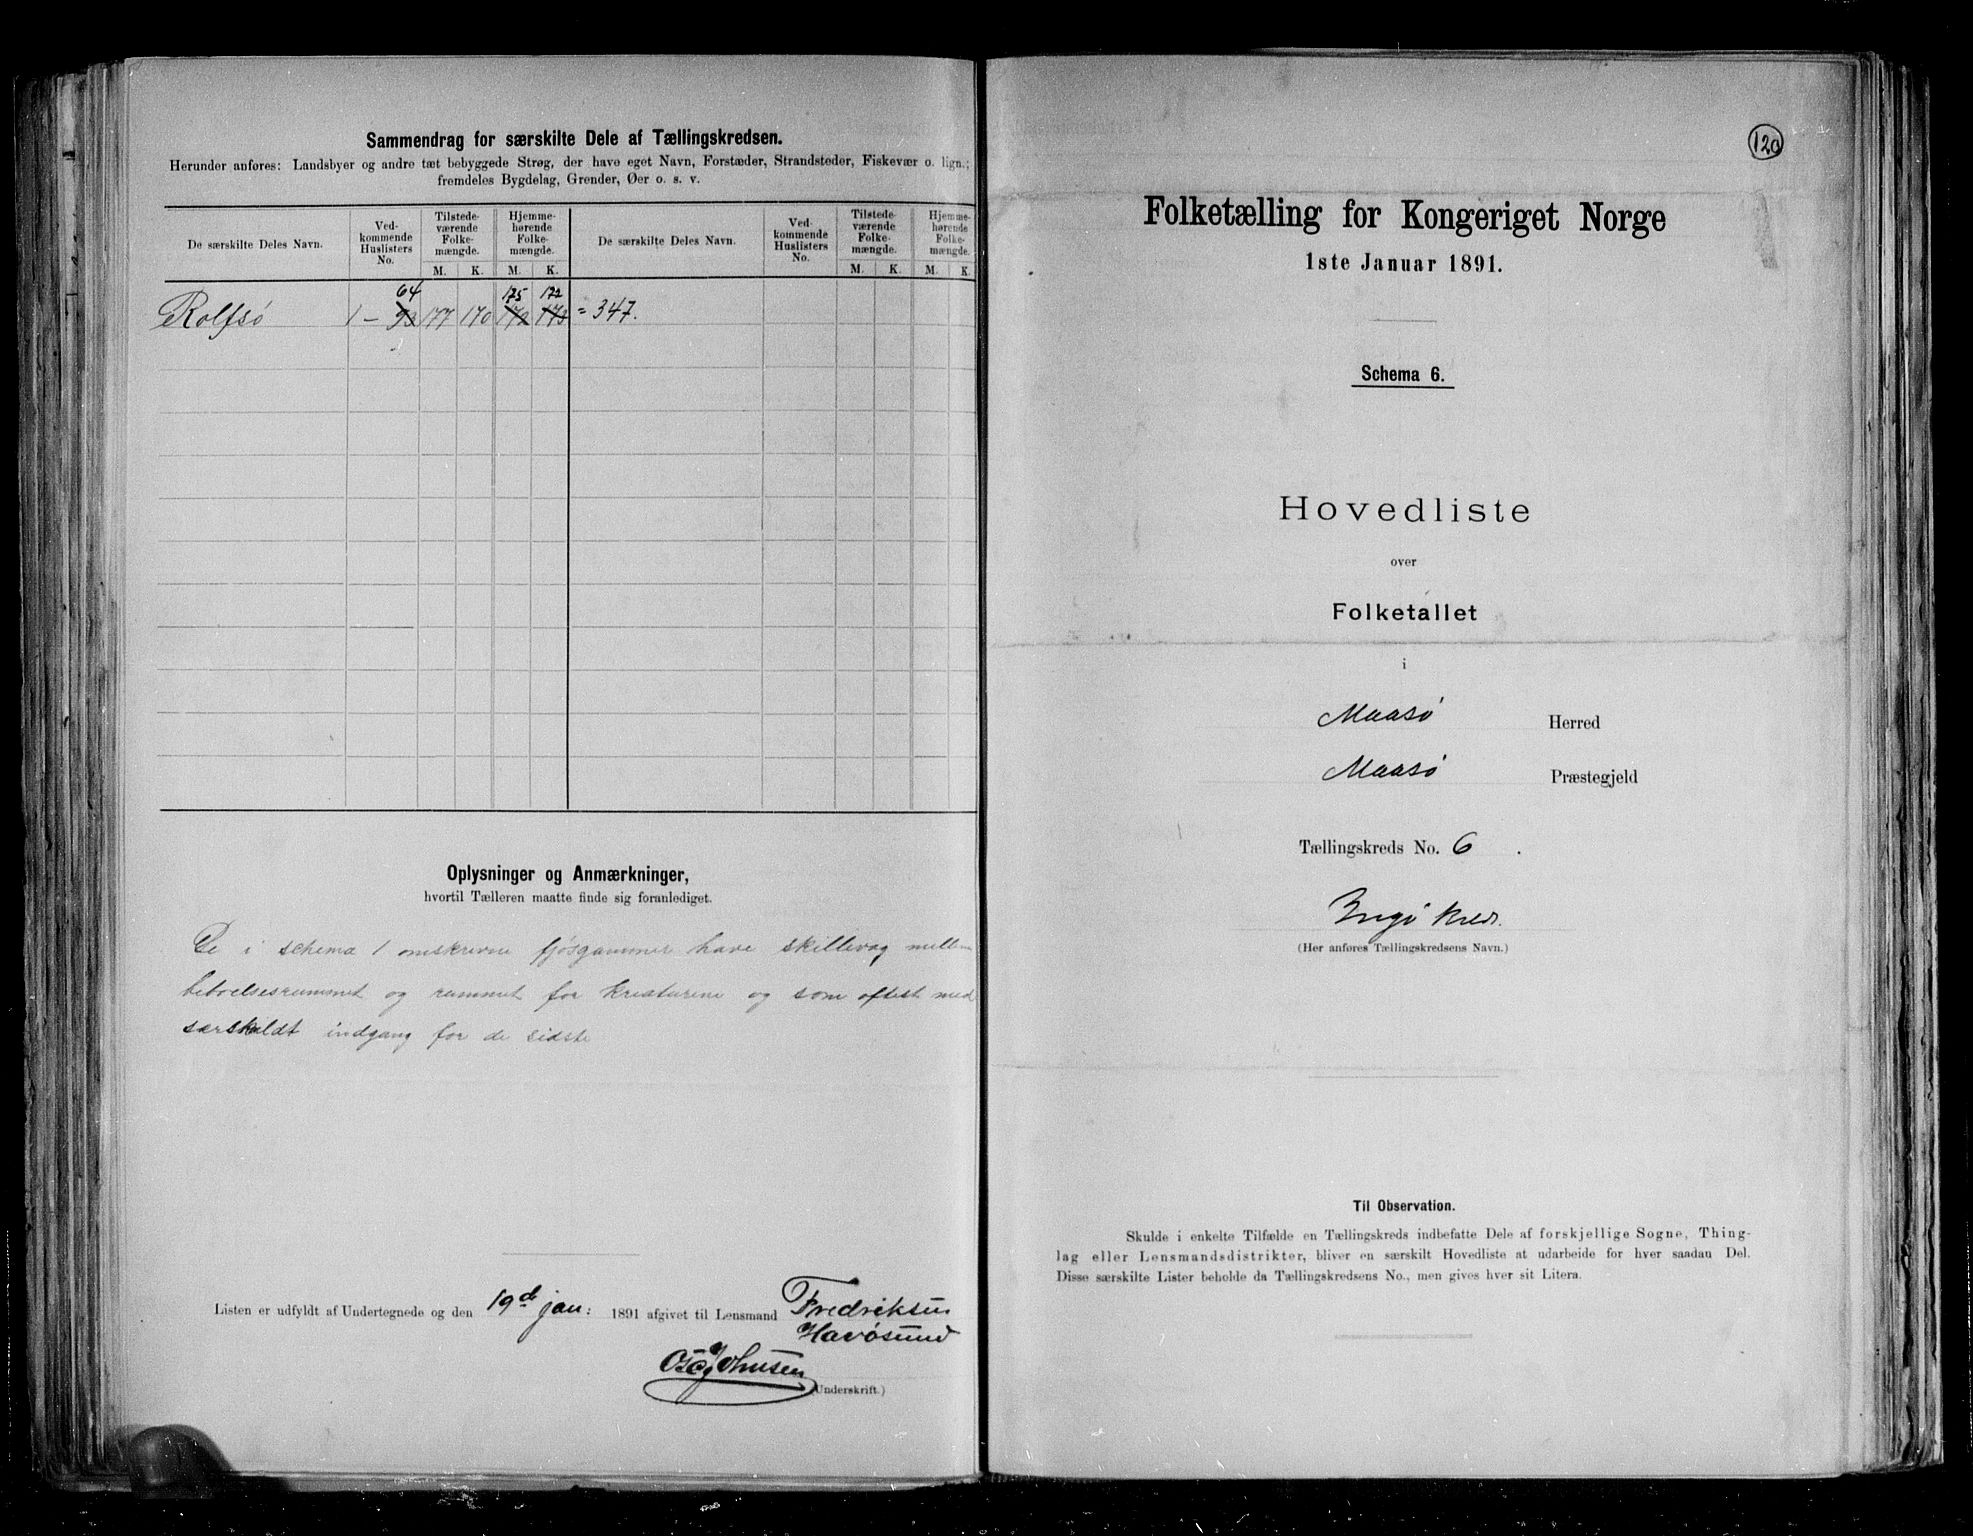 Sammendrag for særskilte Dele af Tællingskredsen.
Herunder anføres: Landsbyer og andre tæt bebyggede Strøg, der have eget Navn, Forstæder, Strandsteder, Fiskevær o. lign.;
fremdeles Bygdelag, Grender, Øer o. s. v.
De særskilte Deles Navn.
Ved-
kommende
Huslisters
No.
Tilstede-
værende
Folke-
mængde.
M. K.
Hjemme-
hørende
Folke-
mængde.
M. K.
De særskilte Deles Navn.
Ved-
kommende
Huslisters
No.
Tilstede-
værende
Folke-
mængde.
M. K.
Hjemme-
hørende
Folke-
mængde.
M. K.
64 175 172
Rolfsø 1 – 177 170 172 173 = 347.
Oplysninger og Anmærkninger,
hvortil Tælleren maatte finde sig foranlediget.
De i schema 1 omskrevne fjøsgammer have skillevæg mellem
beboelsesrummet og rummet for kreaturene og som oftest med
særskildt indgang for de sidste
Listen er udfyldt af Undertegnede og den 19de jan: 1891 afgivet til Lensmand Fredriksen
Havøsund
Johnsen
(Underskrift.)
120
Folketælling for Kongeriget Norge
1ste Januar 1891.
Schema 6.
Hovedliste
over
Folketallet
i
Maasø Herred
Maasø Præstegjeld
Tællingskreds No. 6 .
Ingø Kreds.
(Her anføres Tællingskredsens Navn.)
Til Observation.
Skulde i enkelte Tilfælde en Tællingskreds indbefatte Dele af forskjellige Sogne, Thing-
lag eller Lensmandsdistrikter, bliver en særskilt Hovedliste at udarbeide for hver saadan Del.
Disse særskilte Lister beholde da Tællingskredsens No., men gives hver sit Litera.